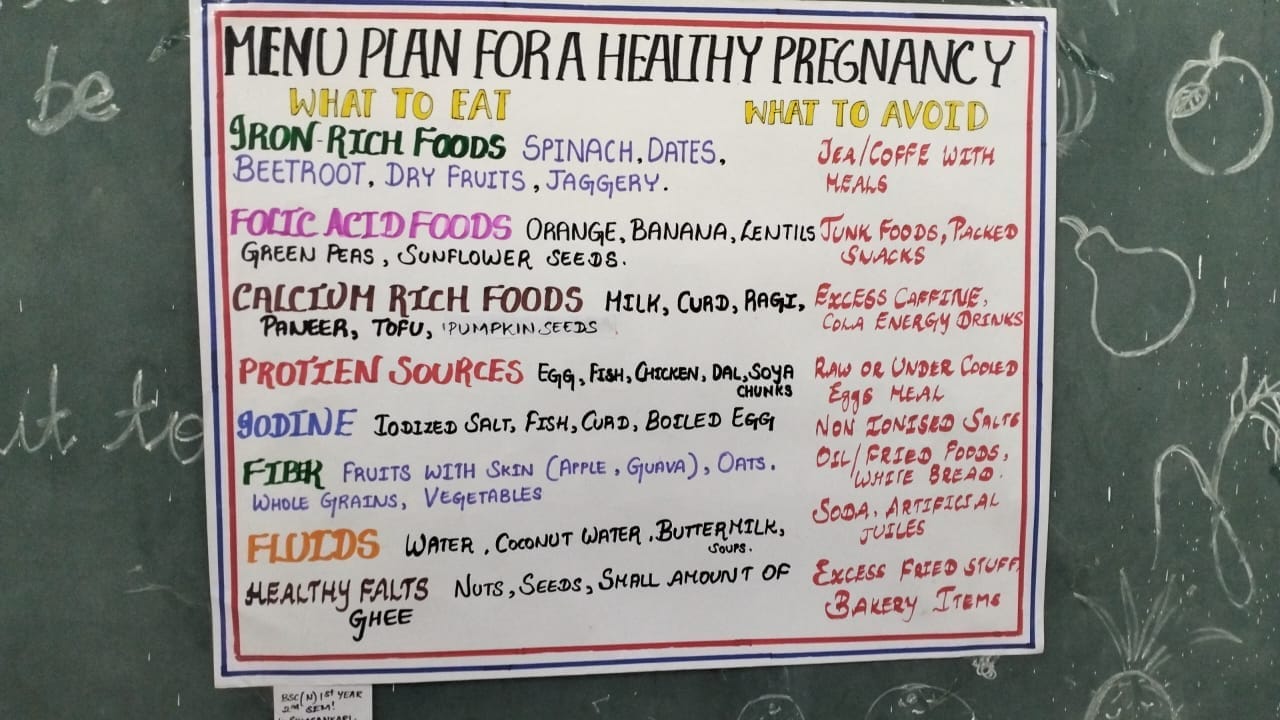 MENU PLAN FOR A HEALTHY PREGNANCY
WHAT TO EAT
WHAT TO AVOID
IRON-RICH FOODS SPINACH, DATES,
BEETROOT, DRY FRUITS, JAGGERY.
TEA/COFFE WITH
MEALS
FOLIC ACID FOODS ORANGE, BANANA, LENTILS
GREEN PEAS, SUNFLOWER SEEDS.
JUNK FOODS, PACKED
SNACKS
CALCIUM RICH FOODS MILK, CURD, RAGI,
PANEER, TOFU, PUMPKIN SEEDS
EXCESS CAFFINE,
COLA ENERGY DRINKS
PROTIEN SOURCES EGG, FISH, CHICKEN, DAL, SOYA
CHUNKS
RAW OR UNDER COOLED
Eggs MEAL
IODINE IODIZED SALT, FISH, CURD, BOILED EGG
NON IONISED SALTS
FIBER FRUITS WITH SKIN (APPLE, GUAVA), OATS.
WHOLE GRAINS, VEGETABLES
OIL/FRIED FOODS,
WHITE BREAD.
FLUIDS WATER, COCONUT WATER, BUTTERMILK,
SOUPS.
SODA, ARTIFICIAL
JUILES
HEALTHY FALTS NUTS, SEEDS, SMALL AMOUNT OF
GHEE
EXCESS FRIED STUFF,
BAKERY ITEMS
be
it to
BSC(N) 1st YEAR
2nd SEM!